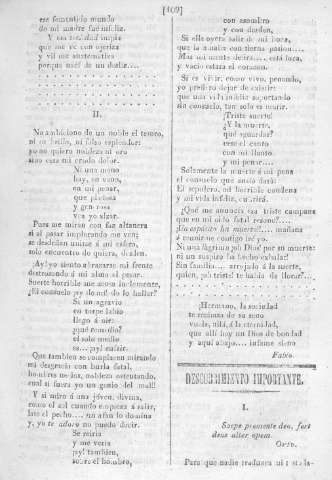 [409]
ese fementido mundo
de mi madre fué infeliz.
que me ve con ojeriza
y vil me anatematiza
porque nací de un desliz....
II.
No ambiciono de un noble el tesoro,
ni su brillo, ni falso esplendor:
yo no quiero nobleza ni oro
sino cese mi crudo dolor.
Ni una mano
hay, en vano,
en mi pesar,
que piadosa
y generosa
vea yo alzar.
Pues me miran con faz altanera
si al pasar implorando me ven;
se desdeñan unirse á mi esfera,
solo encuentro de quiera, desden.
¡Ay! yo siento abrazarse mi frente
destrozando á mi alma el pesar.
Suerte horrible me abruma inclemente,
¿El consuelo ¡ay de mí! do lo hallar?
Si un agravio
en torpe labio
llego á oir:
¿qué remedio?
el solo medio
es... ¡ay! sufrir.
Que tambien se complacen mirando
mi desgracia con burla fatal,
hombres necios, nobleza ostentando,
cual si fuera yo un genio del mal!!
Y si miro á una jóven, divina,
como el sol cuando empieza á salir,
late el pecho.... un afan lo domina
y, yo te adoro no puedo decir.
Se reiria
y me veria
¡ay! tambien,
sobre el hombro,
con asombro
y con desden.
Si ella oyera salir de mi boca,
que la amaba con tierna pasion....
Mas mi mente delira.... está loca,
y vacío estara el corazon.
Si es vivir, como vivo, penando,
yo prefiero dejar de existir:
que una vida infeliz soportando
sin consuelo, tan solo es morir.
¡Triste suerte!
¿Y la muerte,
qué aguardas?
cese el canto
con mi llanto
y mi pesar....
Solamente la muerte á mi pena
el consuelo que ansio dará:
El sepulcro, mi horrible condena
y mi vida infeliz, cubrirá.
¿Qué me anuncia esa triste campana
que en mi oido fatal resonó?....
¡Un espósito ha muerto!.... mañana
á reunirme contigo iré yo.
Ni una lágrima ¡oh Dios! por su muerte:
ni un suspiro ha hecho exhalar!
Sin familia.... arrojado á la suerte,
quien, ¡oh triste! te habia de llorar?...
¡Hermano, la sociedad
te rechaza de su seno
vuela, allá, á la eternidad,
que allí hay un Dios de bondad
y aquí abajo.... infame cieno
Fabio.
DESCUBRIMIENTO IMPORTANTE.
I.
Sæpe premente deo, fert
deus alter opem
Para que nadie traduzca mi